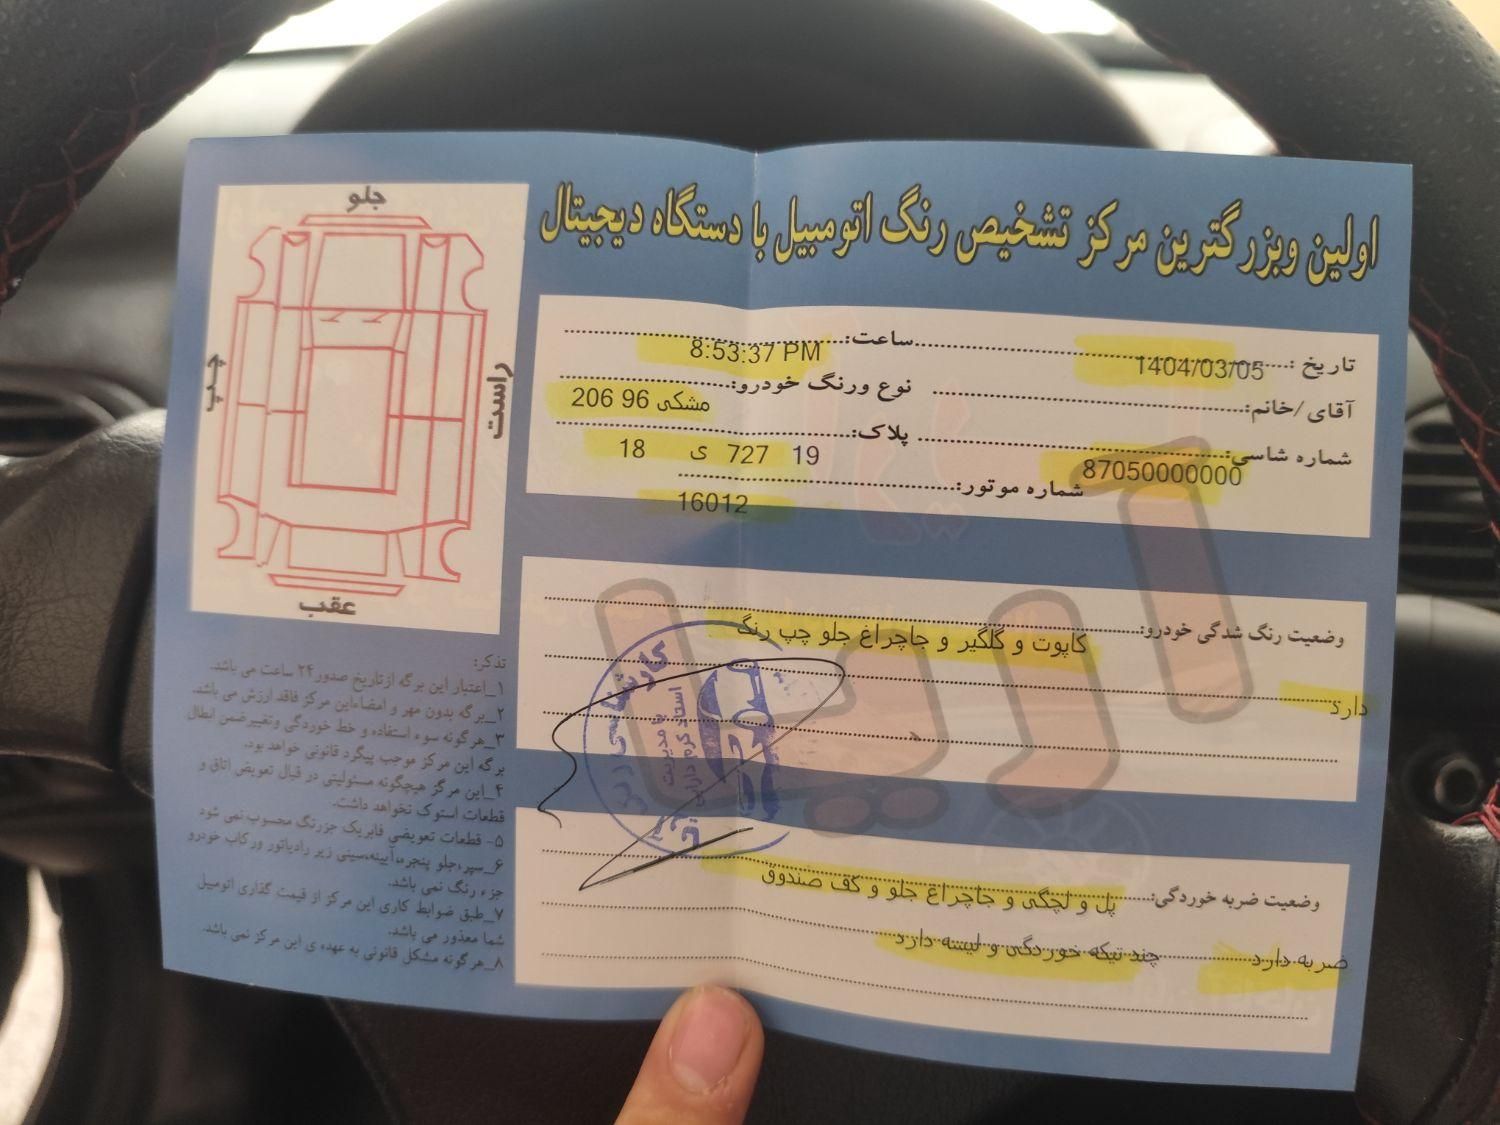 اولین وبزرگترین مرکز تشخیص رنگ اتومبیل با دستگاه دیجیتال
تاریخ: 1404/03/05 ساعت: 8:53:37 PM
آقای/خانم: نوع ورنگ خودرو: مشکی 96 206
شماره شاسی: 87050000000 پلاک: 19 727 ی 18
شماره موتور: 16012
وضعیت رنگ شدگی خودرو: کاپوت و گلگیر و جاچراغ جلو چپ رنگ
دارد
وضعیت ضربه خوردگی: پل و لچگی و جاچراغ جلو و کف صندوق
ضربه دارد چند تیکه خوردگی و لیسه دارد
جلو
چپ
راست
عقب
تذکر:
۱_اعتبار این برگه ازتاریخ صدور۲۴ ساعت می باشد.
۲_برگه بدون مهر و امضاءاین مرکز فاقد ارزش می باشد.
۳_هرگونه سوء استفاده و خط خوردگی وتغییرضمن ابطال
برگه این مرکز موجب پیگرد قانونی خواهد بود.
۴_این مرکز هیچگونه مسئولیتی در قبال تعویض اتاق و
قطعات استوک نخواهد داشت.
۵- قطعات تعویضی فابریک جزرنگ محسوب نمی شود
۶_سپر،جلو پنجره،آیینه،سینی زیر رادیاتور ورکاب خودرو
جزء رنگ نمی باشد.
۷_طبق ضوابط کاری این مرکز از قیمت گذاری اتومبیل
شما معذور می باشد.
۸_هرگونه مشکل قانونی به عهده ی این مرکز نمی باشد.
کارشناسی رنگ
با مدیریت
آریا